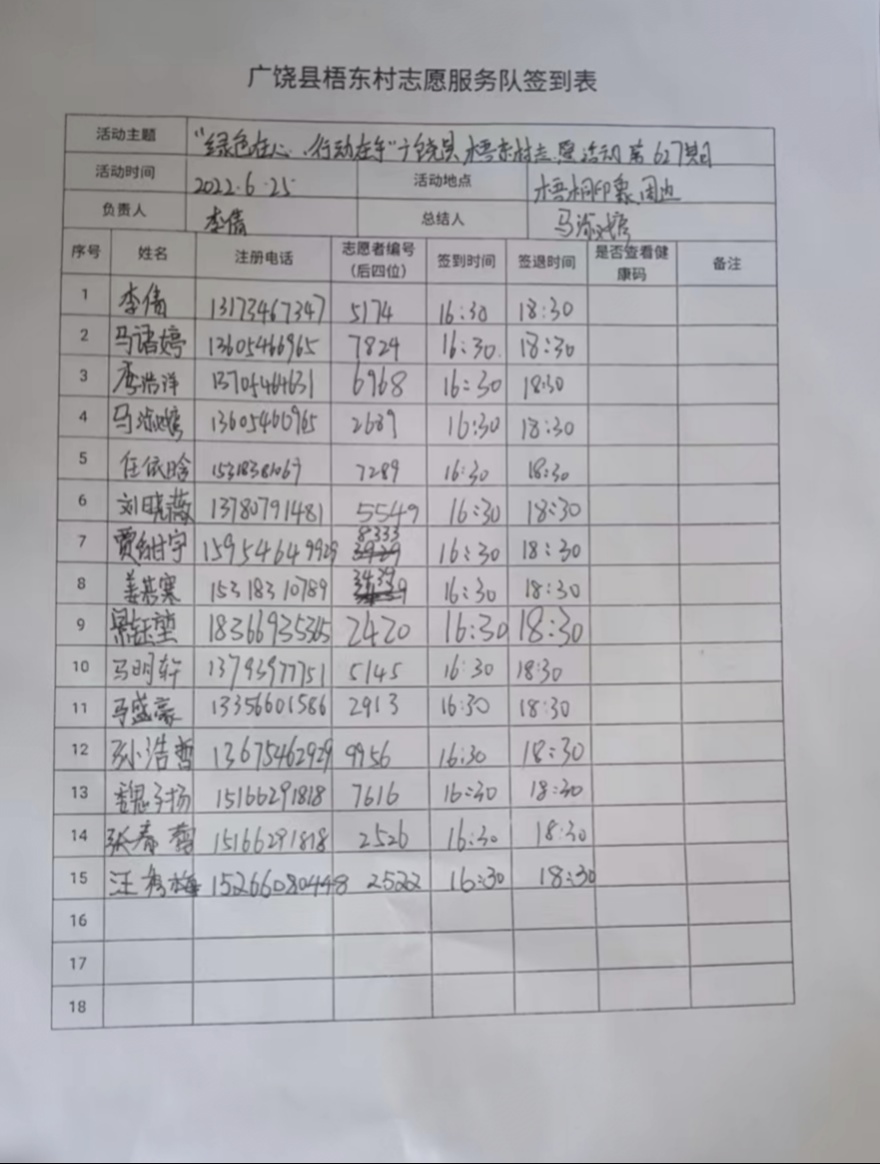 广饶县梧东村志愿服务队签到表
活动主题 "绿色在心、行动在手"广饶县梧东村志愿活动第627期
活动时间 2022.6.25 活动地点 梧桐印象周边
负责人 李倩 总结人 马淑婷
序号 姓名 注册电话 志愿者编号(后四位) 签到时间 签退时间 是否查看健康码 备注
1 李倩 13173467347 5174 16:30 18:30
2 马诺婷 13605466965 7829 16:30 18:30
3 李浩洋 13705464631 6968 16:30 18:30
4 13605466965 2689 16:30 18:30
5 任依晗 7289 16:30 18:30
6 刘晓薇 13780791481 5549 16:30 18:30
7 15954649929 8333 16:30 18:30
8 15318310789 3439 16:30 18:30
9 18366935365 2420 16:30 18:30
10 马明轩 13793977751 5145 16:30 18:30
11 马盛豪 13356601586 2913 16:30 18:30
12 孙浩哲 13675462929 9956 16:30 18:30
13 魏子扬 15166291818 7616 16:30 18:30
14 张春 15166291818 2526 16:30 18:30
15 汪秀梅 15266080448 2522 16:30 18:30
16
17
18